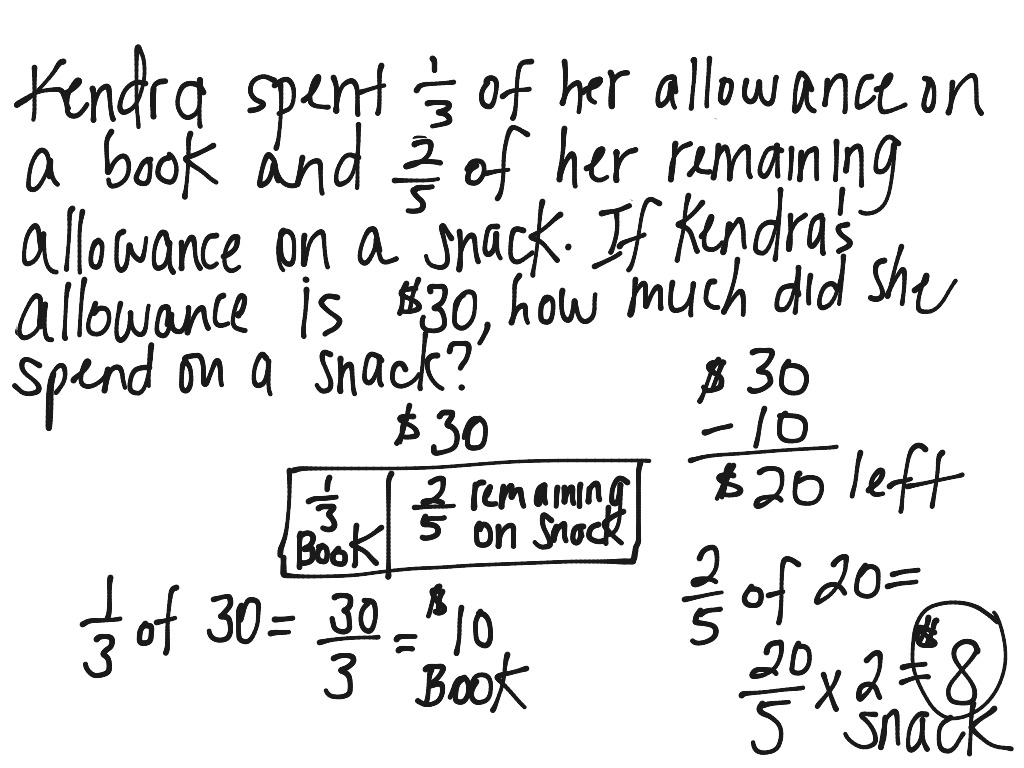 Kendra spent 1/3 of her allowance on
a book and 2/5 of her remaining
allowance on a snack. If Kendra's
allowance is $30, how much did she
spend on a snack?
$30
1/3 Book
2/5 remaining
on snack
1/3 of 30 = 30/3 = $10
Book
$30
- 10
$20 left
2/5 of 20 =
20/5 x 2 = $8
snack